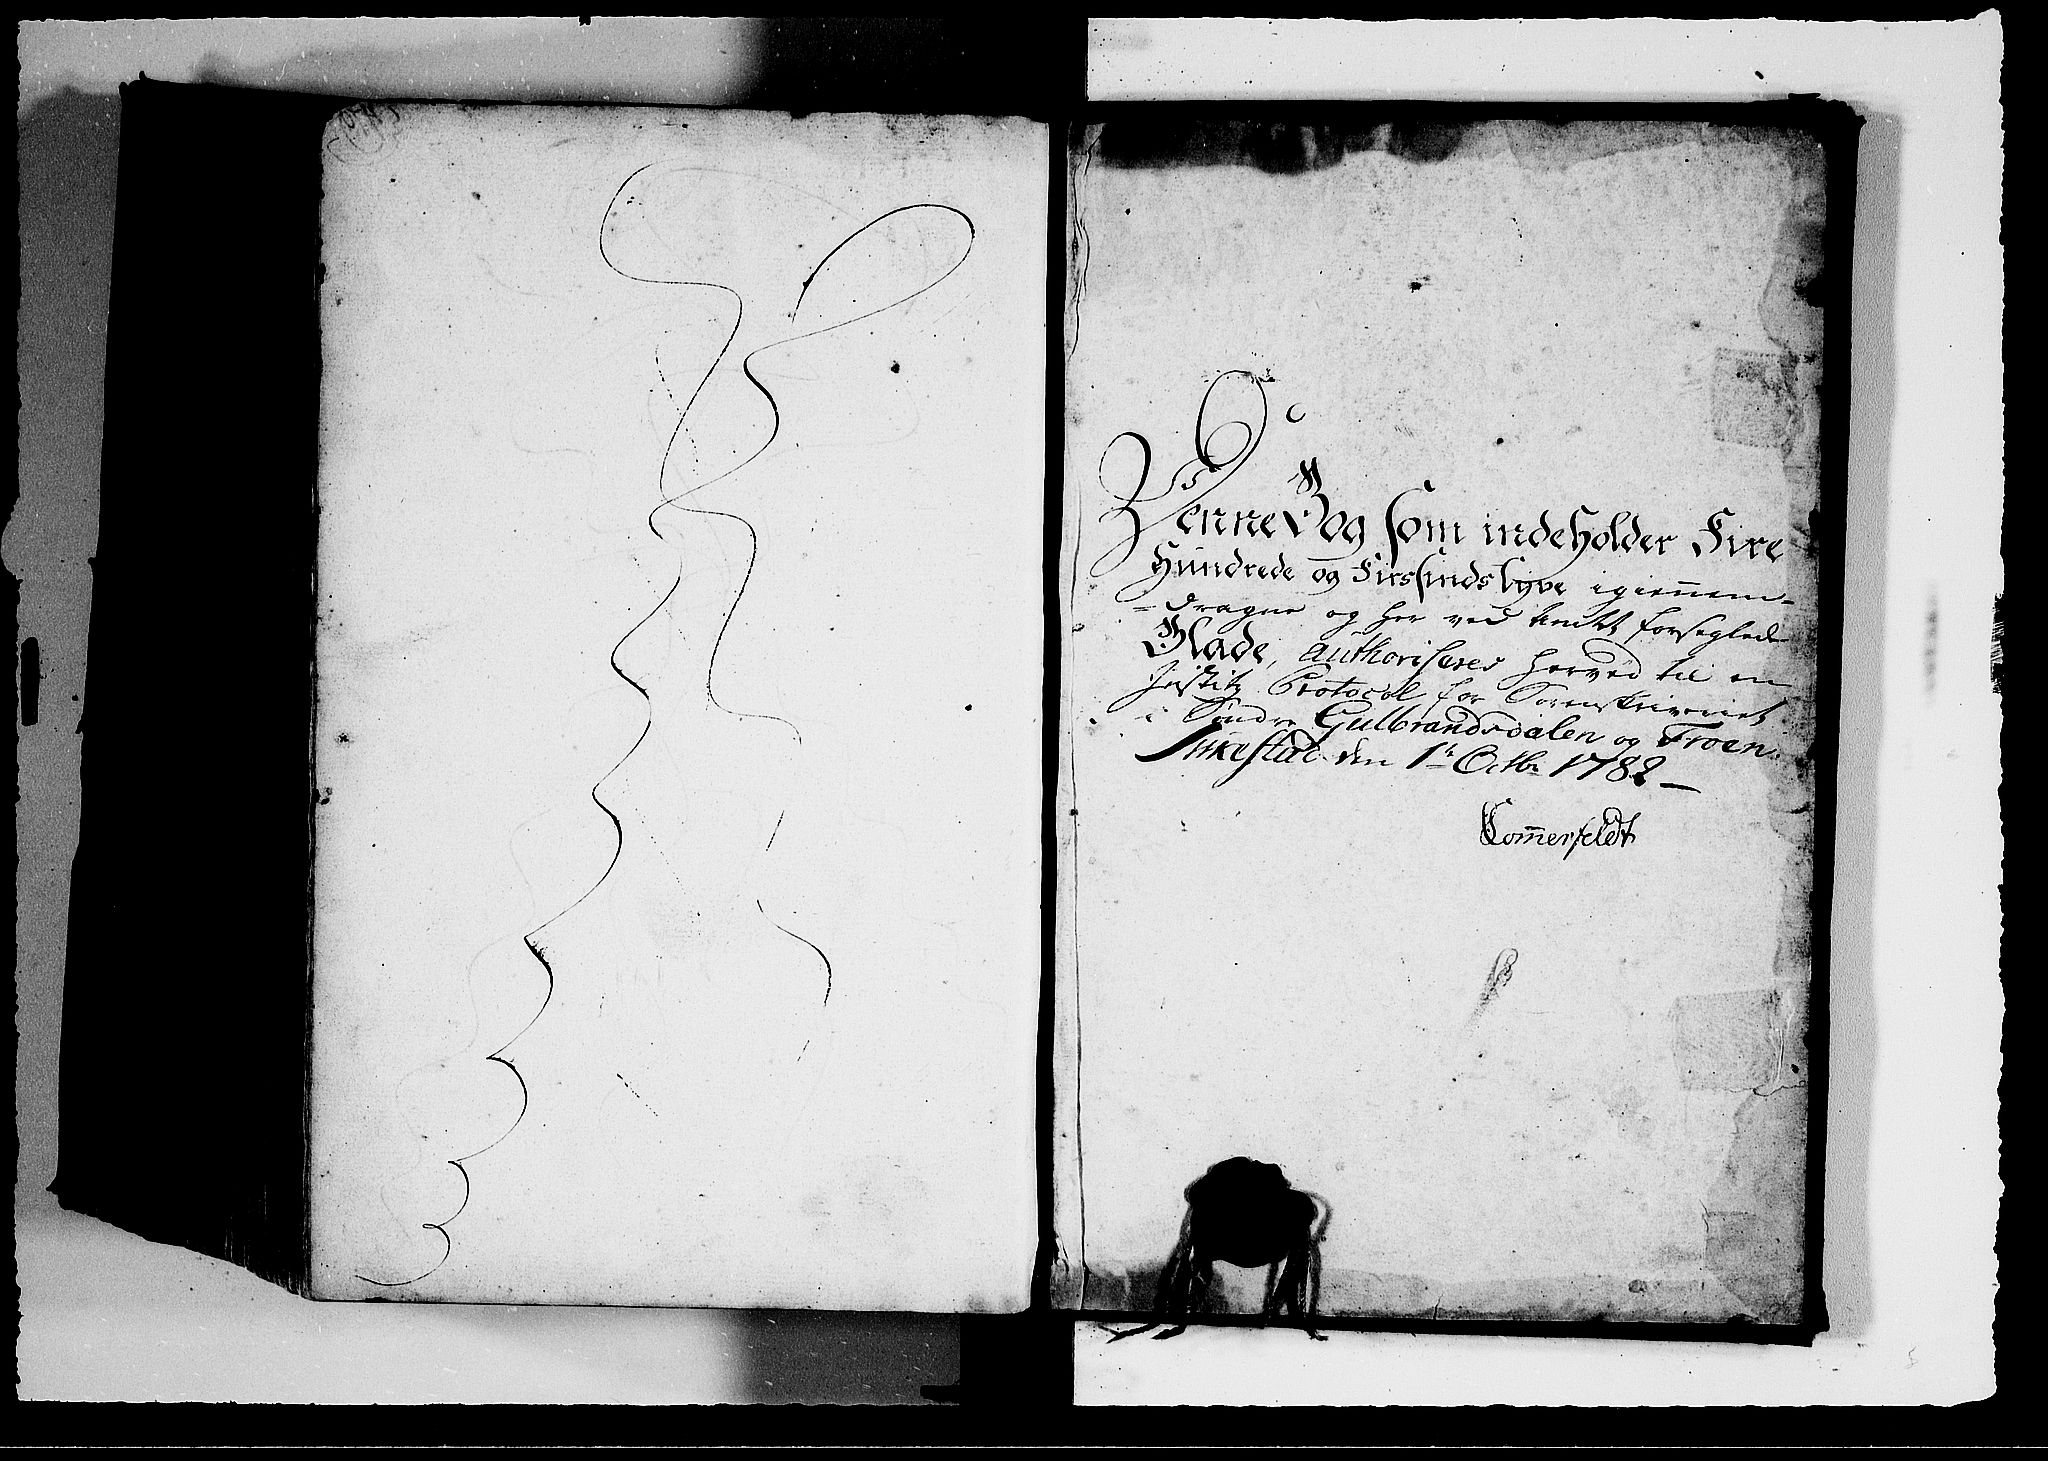 Denne Bog som indeholder Fire
Hundrede og Firssindstyve igiennem-
-dragne og her ved forseglede
Blade, authoriseres herved til en
Justitz Protocol for Sorenskriveriet
i Søndre Gulbrandsdalen og Froen.
den 1te Octbr 1782 —
Sommerfeldt